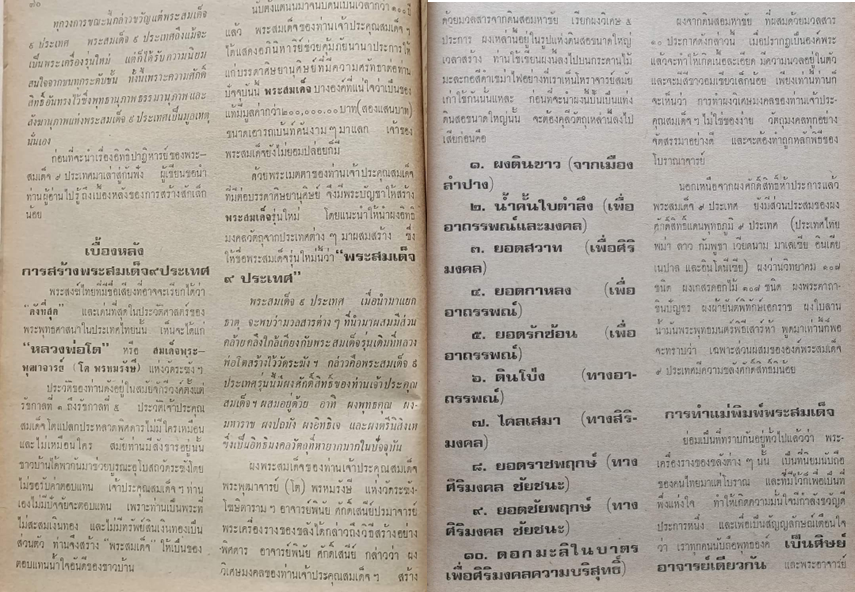 ๘๐
ทุกวงการขณะนี้กล่าวขวัญแต่พระสมเด็จ
๙ ประเทศ พระสมเด็จ ๙ ประเทศถึงแม้จะ
เป็นพระเครื่องรุ่นใหม่ แต่ก็ได้รับความนิยม
สนใจจากชนทุกระดับชั้น ทั้งนี้เพราะความศักดิ์
สิทธิ์อันทรงไว้ซึ่งพุทธานุภาพ ธรรมานุภาพ และ
สังฆานุภาพแห่งพระสมเด็จ ๙ ประเทศเป็นมูลเหตุ
นั่นเอง
ก่อนที่จะนำเรื่องอิทธิปาฏิหารย์ของพระ–
สมเด็จ ๙ ประเทศมาเล่าสู่กันฟัง ผู้เขียนขอนำ
ท่านผู้อ่านไปรู้ถึงเบื้องหลังของการสร้างสักเล็ก
น้อย
เบื้องหลัง
การสร้างพระสมเด็จ๙ประเทศ
พระสงฆ์ไทยที่มีชื่อเสียงที่อาจจะเรียกได้ว่า
"ดังที่สุด" และเด่นที่สุดในประวัติศาสตร์ของ
พระพุทธศาสนาในประเทศไทยนั้น เห็นจะได้แก่
"หลวงพ่อโต" หรือ สมเด็จพระ–
พุฒาจารย์ (โต พรหมรังษี) แห่งวัดระฆังฯ
ประวัติของท่านดังอยู่ในสมัยจักรีวงศ์ตั้งแต่
รัชกาลที่ ๑ ถึงรัชกาลที่ ๕ ประวัติเจ้าประคุณ
สมเด็จฯ โตแปลกประหลาดพิสดารไม่มีใครเหมือน
และไม่เหมือนใคร สมัยท่านมีสังขารอยู่นั้น
ชาวบ้านได้พากันมาช่วยบูรณะอุโบสถวัดระฆังโดย
ไม่ขอรับค่าตอบแทน เจ้าประคุณสมเด็จฯ ท่าน
เองไม่มีปัจจัยจะตอบแทน เพราะท่านเป็นพระที่
ไม่สะสมเงินทอง และไม่มีทรัพย์สินเงินทองเป็น
ส่วนตัว ท่านจึงสร้าง "พระสมเด็จ" ให้เป็นของ
ตอบแทนน้ำใจอันดีของชาวบ้าน
นับตั้งแต่นั้นมาจนบัดนี้เป็นเวลากว่า ๑๐๐ปี
แล้ว พระสมเด็จของท่านเจ้าประคุณสมเด็จฯ
ได้แสดงอภินิหารช่วยคุ้มภัยนานาประการให้
แก่บรรดาศิษยานุศิษย์ที่มีความศรัทธาต่อท่าน
ปัจจุบันนี้ พระสมเด็จ บางองค์ที่แน่ใจว่าเป็นของ
แท้มีมูลค่ากว่า๒๐๐,๐๐๐.๐๐บาท(สองแสนบาท)
ขนาดเอารถเบ๊นท์คันงามๆ มาแลก เจ้าของ
พระสมเด็จยังไม่ยอมปล่อยก็มี
ด้วยพระเมตตาของท่านเจ้าประคุณสมเด็จ
ที่มีต่อบรรดาศิษยานุศิษย์ จึงมีพระบัญชาให้สร้าง
พระสมเด็จรุ่นใหม่ โดยแนะนำให้นำผงอิทธิ
มงคลวัตถุจากประเทศต่าง ๆ มาผสมสร้าง ซึ่ง
ให้ชื่อพระสมเด็จรุ่นใหม่นี้ว่า"พระสมเด็จ
๙ ประเทศ"
พระสมเด็จ ๙ ประเทศ เมื่อนำมาแยก
ธาตุ จะพบว่ามวลสารต่าง ๆ ที่นำมาผสมมีส่วน
คล้ายคลึงใกล้เคียงกับพระสมเด็จรุ่นเดิมที่หลวง
พ่อโตสร้างไว้วัดระฆังฯ กล่าวคือพระสมเด็จ ๙
ประเทศรุ่นนี้มีผงศักดิ์สิทธิ์ของท่านเจ้าประคุณ
สมเด็จฯ ผสมอยู่ด้วย อาทิ ผงพุทธคุณ ผง–
มหาราช ผงปถมัง ผงอิทธิเจ และผงตรีนิสิงเห
ซึ่งเป็นอิทธิมงคลวัตถุที่หายากมากในปัจจุบัน
ผงพระสมเด็จของท่านเจ้าประคุณสมเด็จ
พระพุฒาจารย์ (โต) พรหมรังษี แห่งวัดระฆัง–
โฆษิตาราม ๆ อาจารย์พินัย ศักดิ์เสนีย์ปรมาจารย์
พระเครื่องรางของขลังได้กล่าวถึงวิธีสร้างอย่าง
พิสดาร อาจารย์พินัย ศักดิ์เสนีย์ กล่าวว่า ผง
วิเศษมงคลของท่านเจ้าประคุณสมเด็จฯ สร้าง
ด้วยมวลสารจากดินสอมหาชัย เรียกผงวิเศษ ๕
ประการ ผงเหล่านี้อยู่ในรูปแท่งดินสอขนาดใหญ่
เวลาสร้าง ท่านใช้เขียนผงนี้ลงไปบนกระดานไม้
เก่าใช้กันนั้นแหละ ก่อนที่จะนำผงนั้นปั้นเป็นแท่ง
ดินสอขนาดใหญ่นั้น จะต้องคลุกวัตถุเหล่านี้ลงไป
เสียก่อนคือ
๑. ผงดินขาว (จากเมือง
ลำปาง)
๒. น้ำคั้นใบตำลึง (เพื่อ
อาถรรพณ์และมงคล)
๓. ยอดสวาท (เพื่อศิริ
มงคล)
๔. ยอดกาหลง (เพื่อ
อาถรรพณ์)
๕. ยอดรักซ้อน (เพื่อ
อาถรรพณ์)
๖. ดินโป่ง (ทางอา–
ถรรพณ์)
๗. ไคลเสมา (ทางสิริ–
มงคล)
๘. ยอดราชพฤกษ์ (ทาง
ศิริมงคล ชัยชนะ)
๙. ยอดชัยพฤกษ์ (ทาง
ศิริมงคล ชัยชนะ)
๑๐. ดอกมะลิในบาตร
เพื่อศิริมงคลความบริสุทธิ์)
ผงจากดินสอมหาชัย ที่ผสมด้วยมวลสาร
๑๐ ประกาศดังกล่าวนี้ เมื่อปรากฏเป็นองค์พระ
แล้วจะทำให้เกิดเนื้อละเอียด มีความนวลอยู่ในตัว
และจะมีสีขาวอมเขียวเล็กน้อย เพียงเท่านี้ท่านก็
จะเห็นว่า การทำผงวิเศษมงคลของท่านเจ้าประ–
คุณสมเด็จฯ ไม่ใช่ของง่าย วัตถุมงคลทุกอย่าง
จัดสรรมาอย่างดี และจะต้องทำถูกหลักพิธีของ
โบราณาจารย์
นอกเหนือจากผงศักดิ์สิทธิ์ห้าประการแล้ว
พระสมเด็จ ๙ ประเทศ ยังมีส่วนประสมของผง
ศักดิ์สิทธิ์แดนพุทธภูมิ ๙ ประเทศ (ประเทศไทย
พม่า ลาว กัมพูชา เวียดนาม มาเลเซีย อินเดีย
เนปาล และอินโดนีเซีย) ผงว่านวิทยาคม ๑๐๘
ชนิด ผงเกสรดอกไม้ ๑๐๘ ชนิด ผงพระคาถา–
ชินบัญชร ผงผ้ายันต์พิทักษ์เอกราช ผงใบลาน
จะทราบว่า เฉพาะส่วนผสมขององค์พระสมเด็จ
๙ ประเทศมีความขลังศักดิ์สิทธิ์มิน้อย
การทำแม่พิมพ์พระสมเด็จ
ย่อมเป็นที่ทราบกันอยู่ทั่วไปแล้วว่า พระ–
เครื่องรางของขลังต่าง ๆ นั้น เป็นที่นิยมนับถือ
ของคนไทยมาแต่โบราณ และที่มีไว้ก็เพื่อเป็นที่
พึ่งแห่งใจ ทำให้เกิดความมั่นใจมีกำลังขวัญดี
ประการหนึ่ง และเพื่อเป็นสัญญาลักษณ์เตือนใจ
ว่า เราทุกคนนับถือพุทธองค์ เป็นศิษย์
อาจารย์เดียวกัน และพระอาจารย์